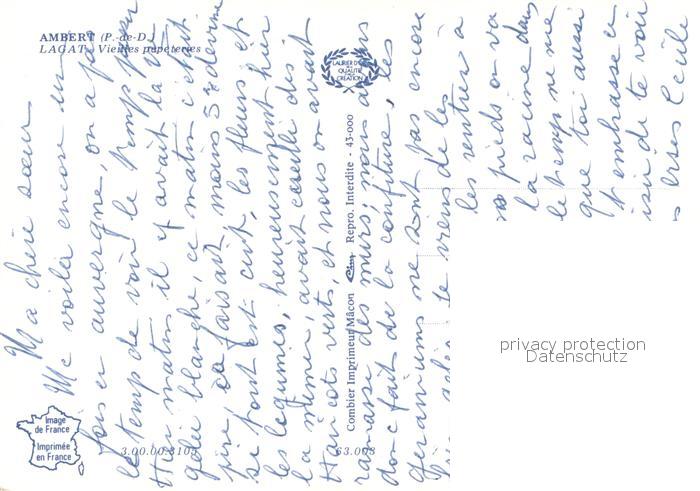 AMBERT (P.-de-D.)
LAGAT - Vieilles papeteries
LAURIER D'OR
QUALITÉ
CRÉATION
Combier Imprimeur Mâcon Repro. Interdite - 43-000
Image
de France
Imprimée
en France
3.00.00.3105
63.003
privacy protection
Datenschutz
Ma chère sœur
Me voilà encore un
fois en auvergne, on a
le temps de voir le temps
Hier matin il y avait la
gelée blanche, ce matin c'était
pire, ça faisait moins
si font est cuit, les fleurs et
les légumes, heureusement hier
la mémer, avait cueilli des
Haricots verts, et nous on avait
ramassé des murs, nous avons
donc fait de la confiture, les
geraniums ne sont pas encore
gelés je viens de les
les rentrer à
pieds on va
la racine dans
le temps ne me
que toi aussi
t'embrasse
de te voir
Cécile